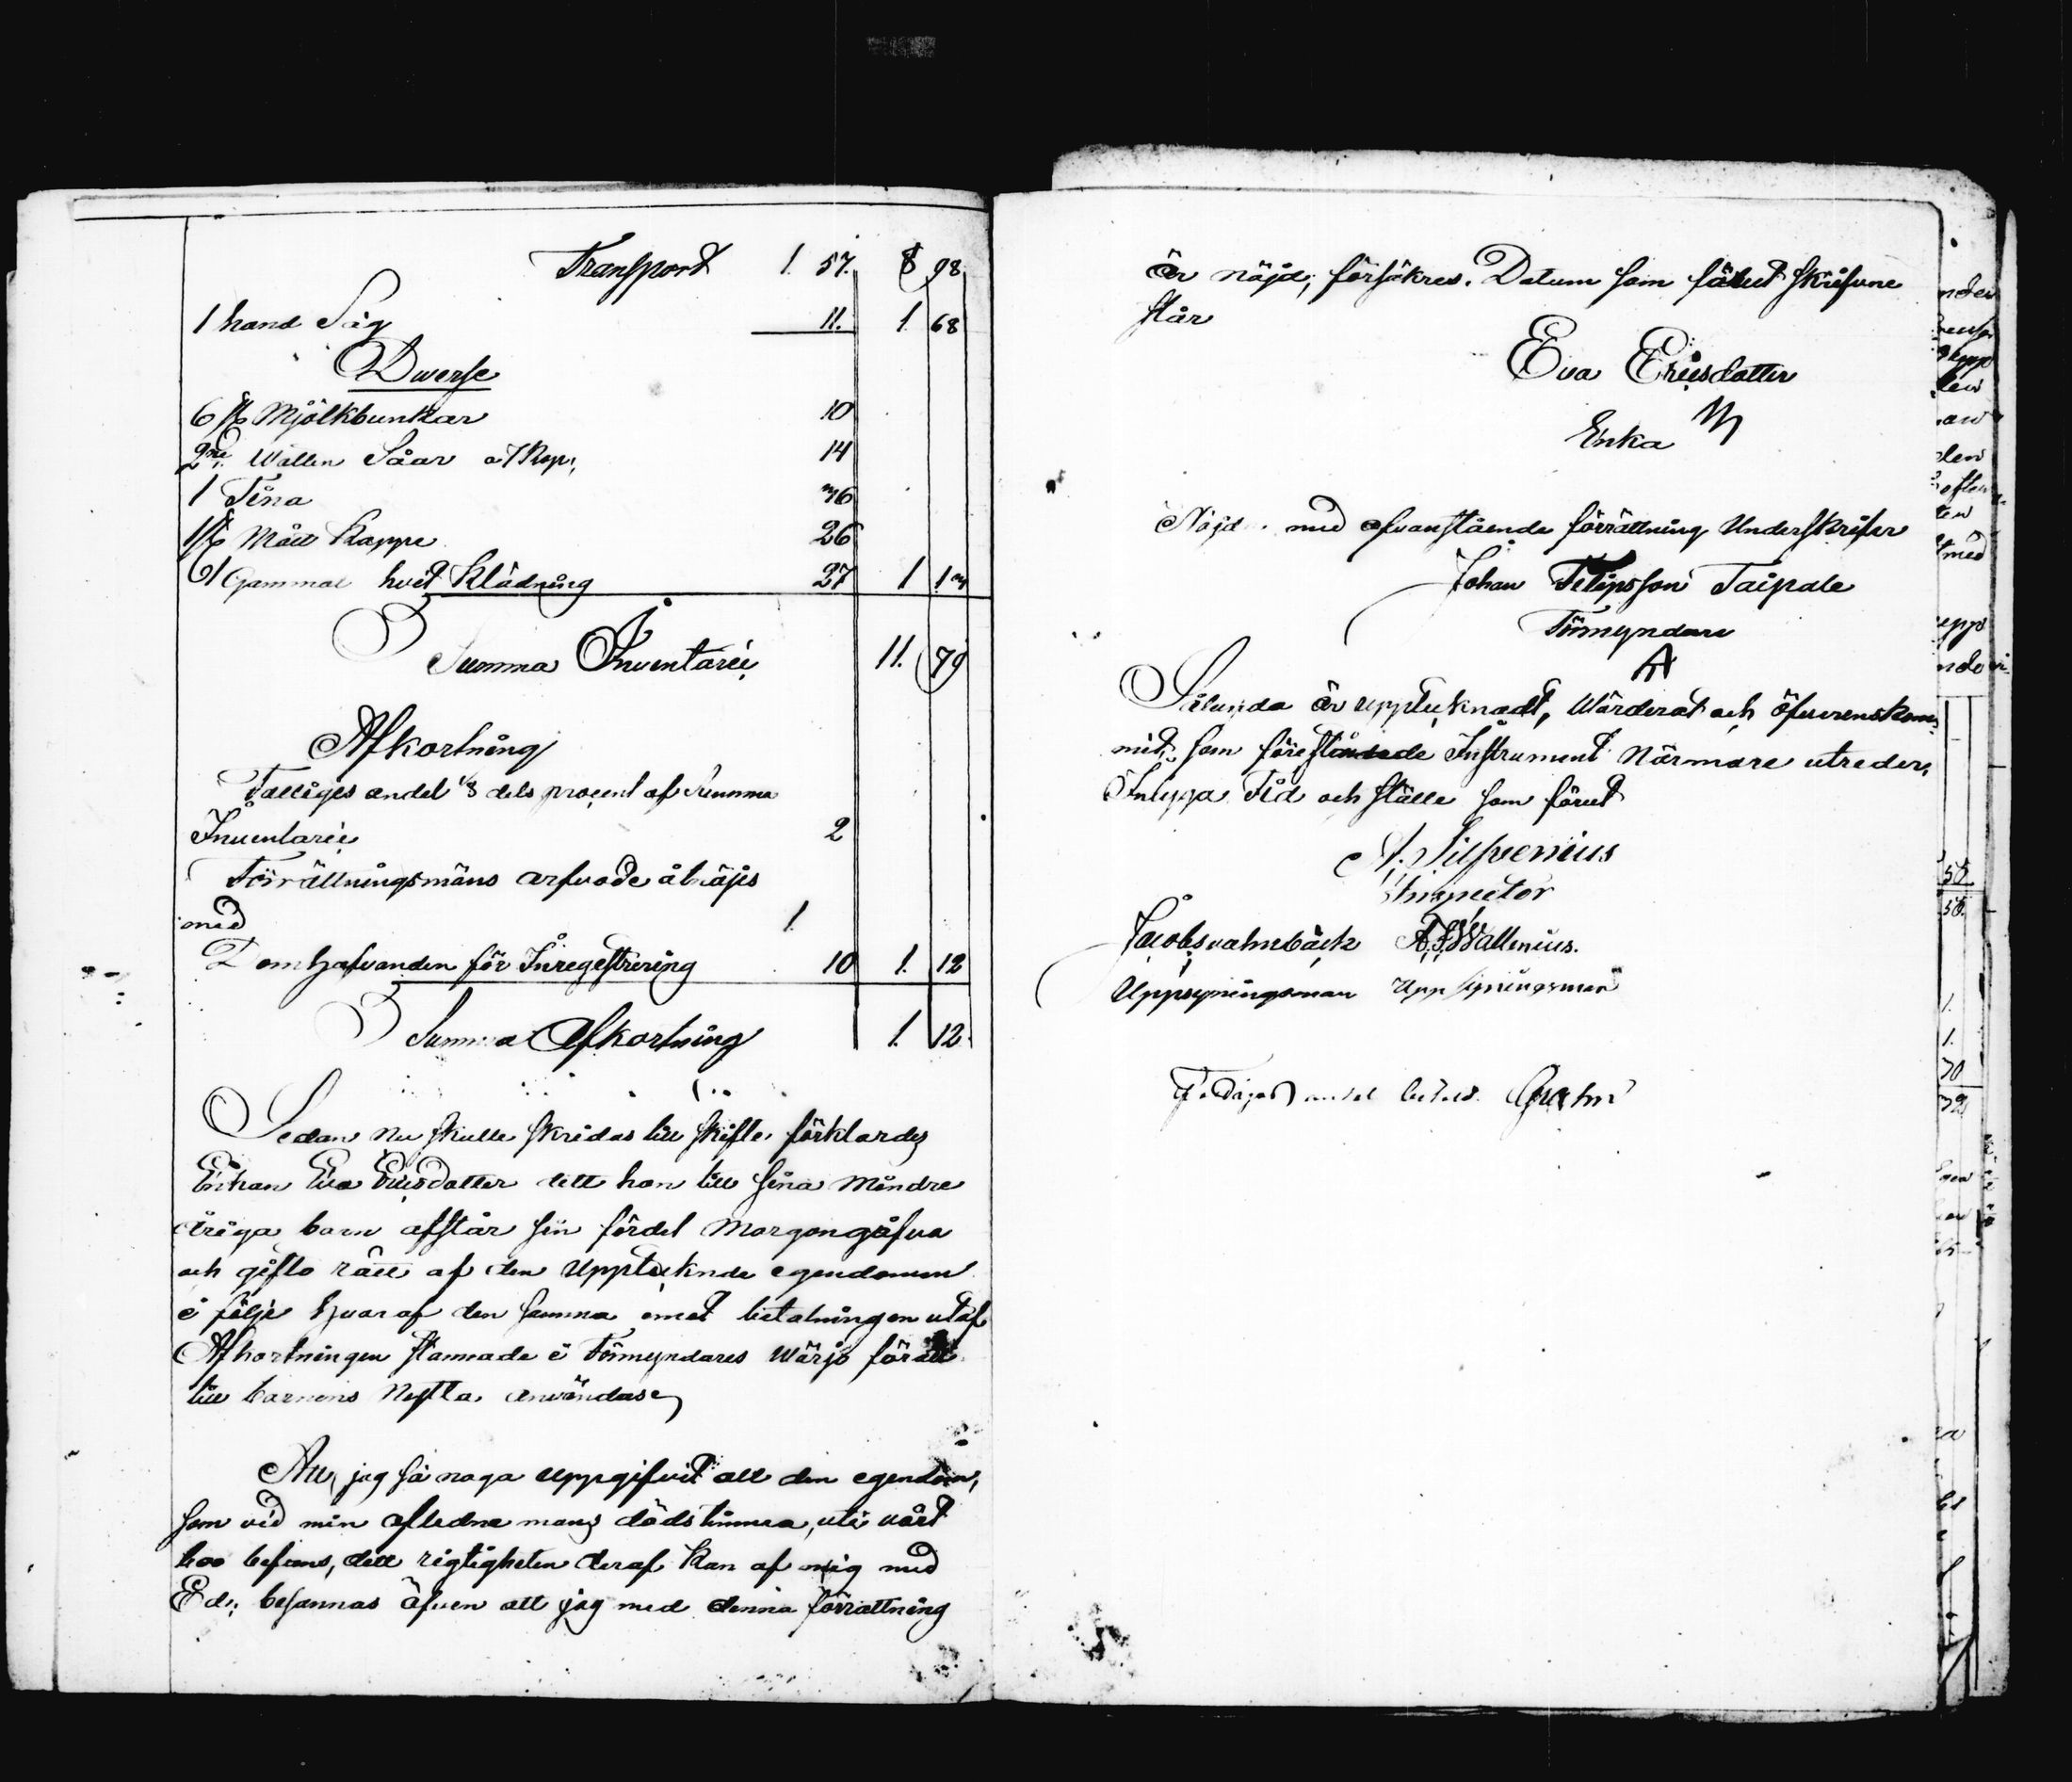 Transport 1. 57. 8 98
1 hand Såg 11. 1. 68
Diverse
6 st Mjölkbunkar 10
2ne Watten Såar a 7 Kop; 14
1 Tina 36
1 st Mått Kappe 26
1 Gammal hvit Klädning 27 1 13
Summa Inventarii 11. 79
Afkortning
Fattiges andel 1/8 dels procent af Summa
Inventarii 2
Förrättningsmäns arfvode åtnöjes
med 1.
Domhafvanden för Inregistrering 10 1. 12
Summa Afkortning 1. 12
Sedan Nu skulle skridas till skifte förklardes
Enkan Eva Ericsdotter dett hon till sina Mindre
åriga barn afstår sin fördel Morgongåfva
och gifto rätt af den Upptecknde egendomen
i följe hvaraf den summa emot betalningen utaf
Afkortningen stannade i Förmyndares Wärjo för att
till barnens Nytta användas
Att jag så noga Uppgifvit all den egendom,
som vid min afledne mans dödstimma, uti vårt
boo befans, dett rigtigheten deraf kan af mig med
Ed; besannas äfven att jag med denna förrättning
är nöjd, försäkres. Datum som förut skrifvne
står
Eva Ericsdotter
Enka
Nöjd med ofvanstående förrättning Underskrifver
Johan Filipsson Taipale
Förmyndare
Sålunda är upptecknadt, Wärderat och öfverenskom-
mit, som föreståande Instrument Närmare utreder,
Intyga Tid och ställe som förut
A. Silfvenius
Inspector
Jacob Wallenius.
Uppsyningsman Uppsyningsman
andel